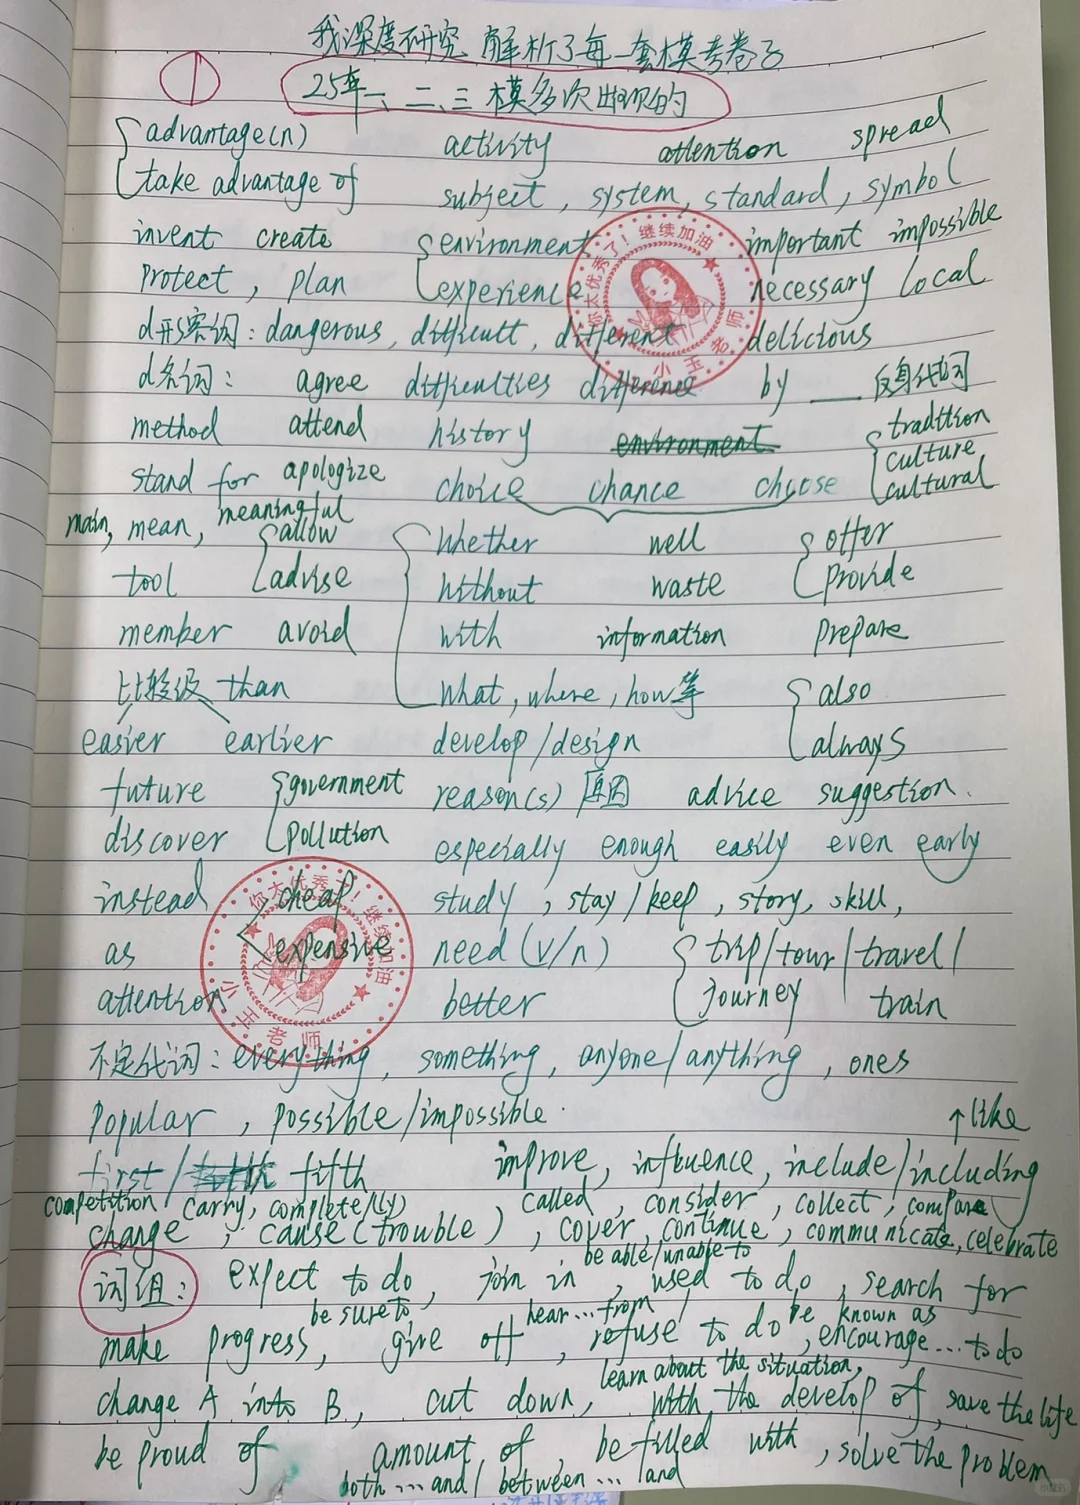 我深度研究 解析了每一套模考卷子
①
25年一、二、三模多次出现的
advantage(n) activity attention spread
take advantage of subject, system, standard, symbol
invent create environment important impossible
protect, plan experience necessary local
d形容词: dangerous, difficult, different delicious
d名词: agree difficulties difference by ___ 反身代词
method attend history environment tradition
stand for apologize choice chance choose culture
cultural
main, mean, meaningful
allow whether well offer
tool advise without waste provide
member avoid with information prepare
比较级 than what, where, how等 also
easier earlier develop/design always
future government reason(s) 原因 advice suggestion.
discover pollution especially enough easily even early
instead cheap study, stay/keep, story, skill,
as expensive need (v/n) trip/tour/travel/
attention better journey train
不定代词: everything, something, anyone/anything, ones
popular, possible/impossible.
↑like
first/ fifth improve, influence, include/including
competition carry, complete(ly) called, consider, collect, compare
change, cause(trouble), cover, continue, communicate, celebrate
be able/unable to
词组: expect to do, join in, used to do, search for
be sure to hear...from be known as
make progress, give off, refuse to do, encourage...to do
learn about the situation,
change A into B, cut down, with the develop of, save the life
be proud of amount of be filled with, solve the problem
both...and/ between... and
你太优秀了!继续加油
小玉老师
你太优秀了!继续加油
小玉老师